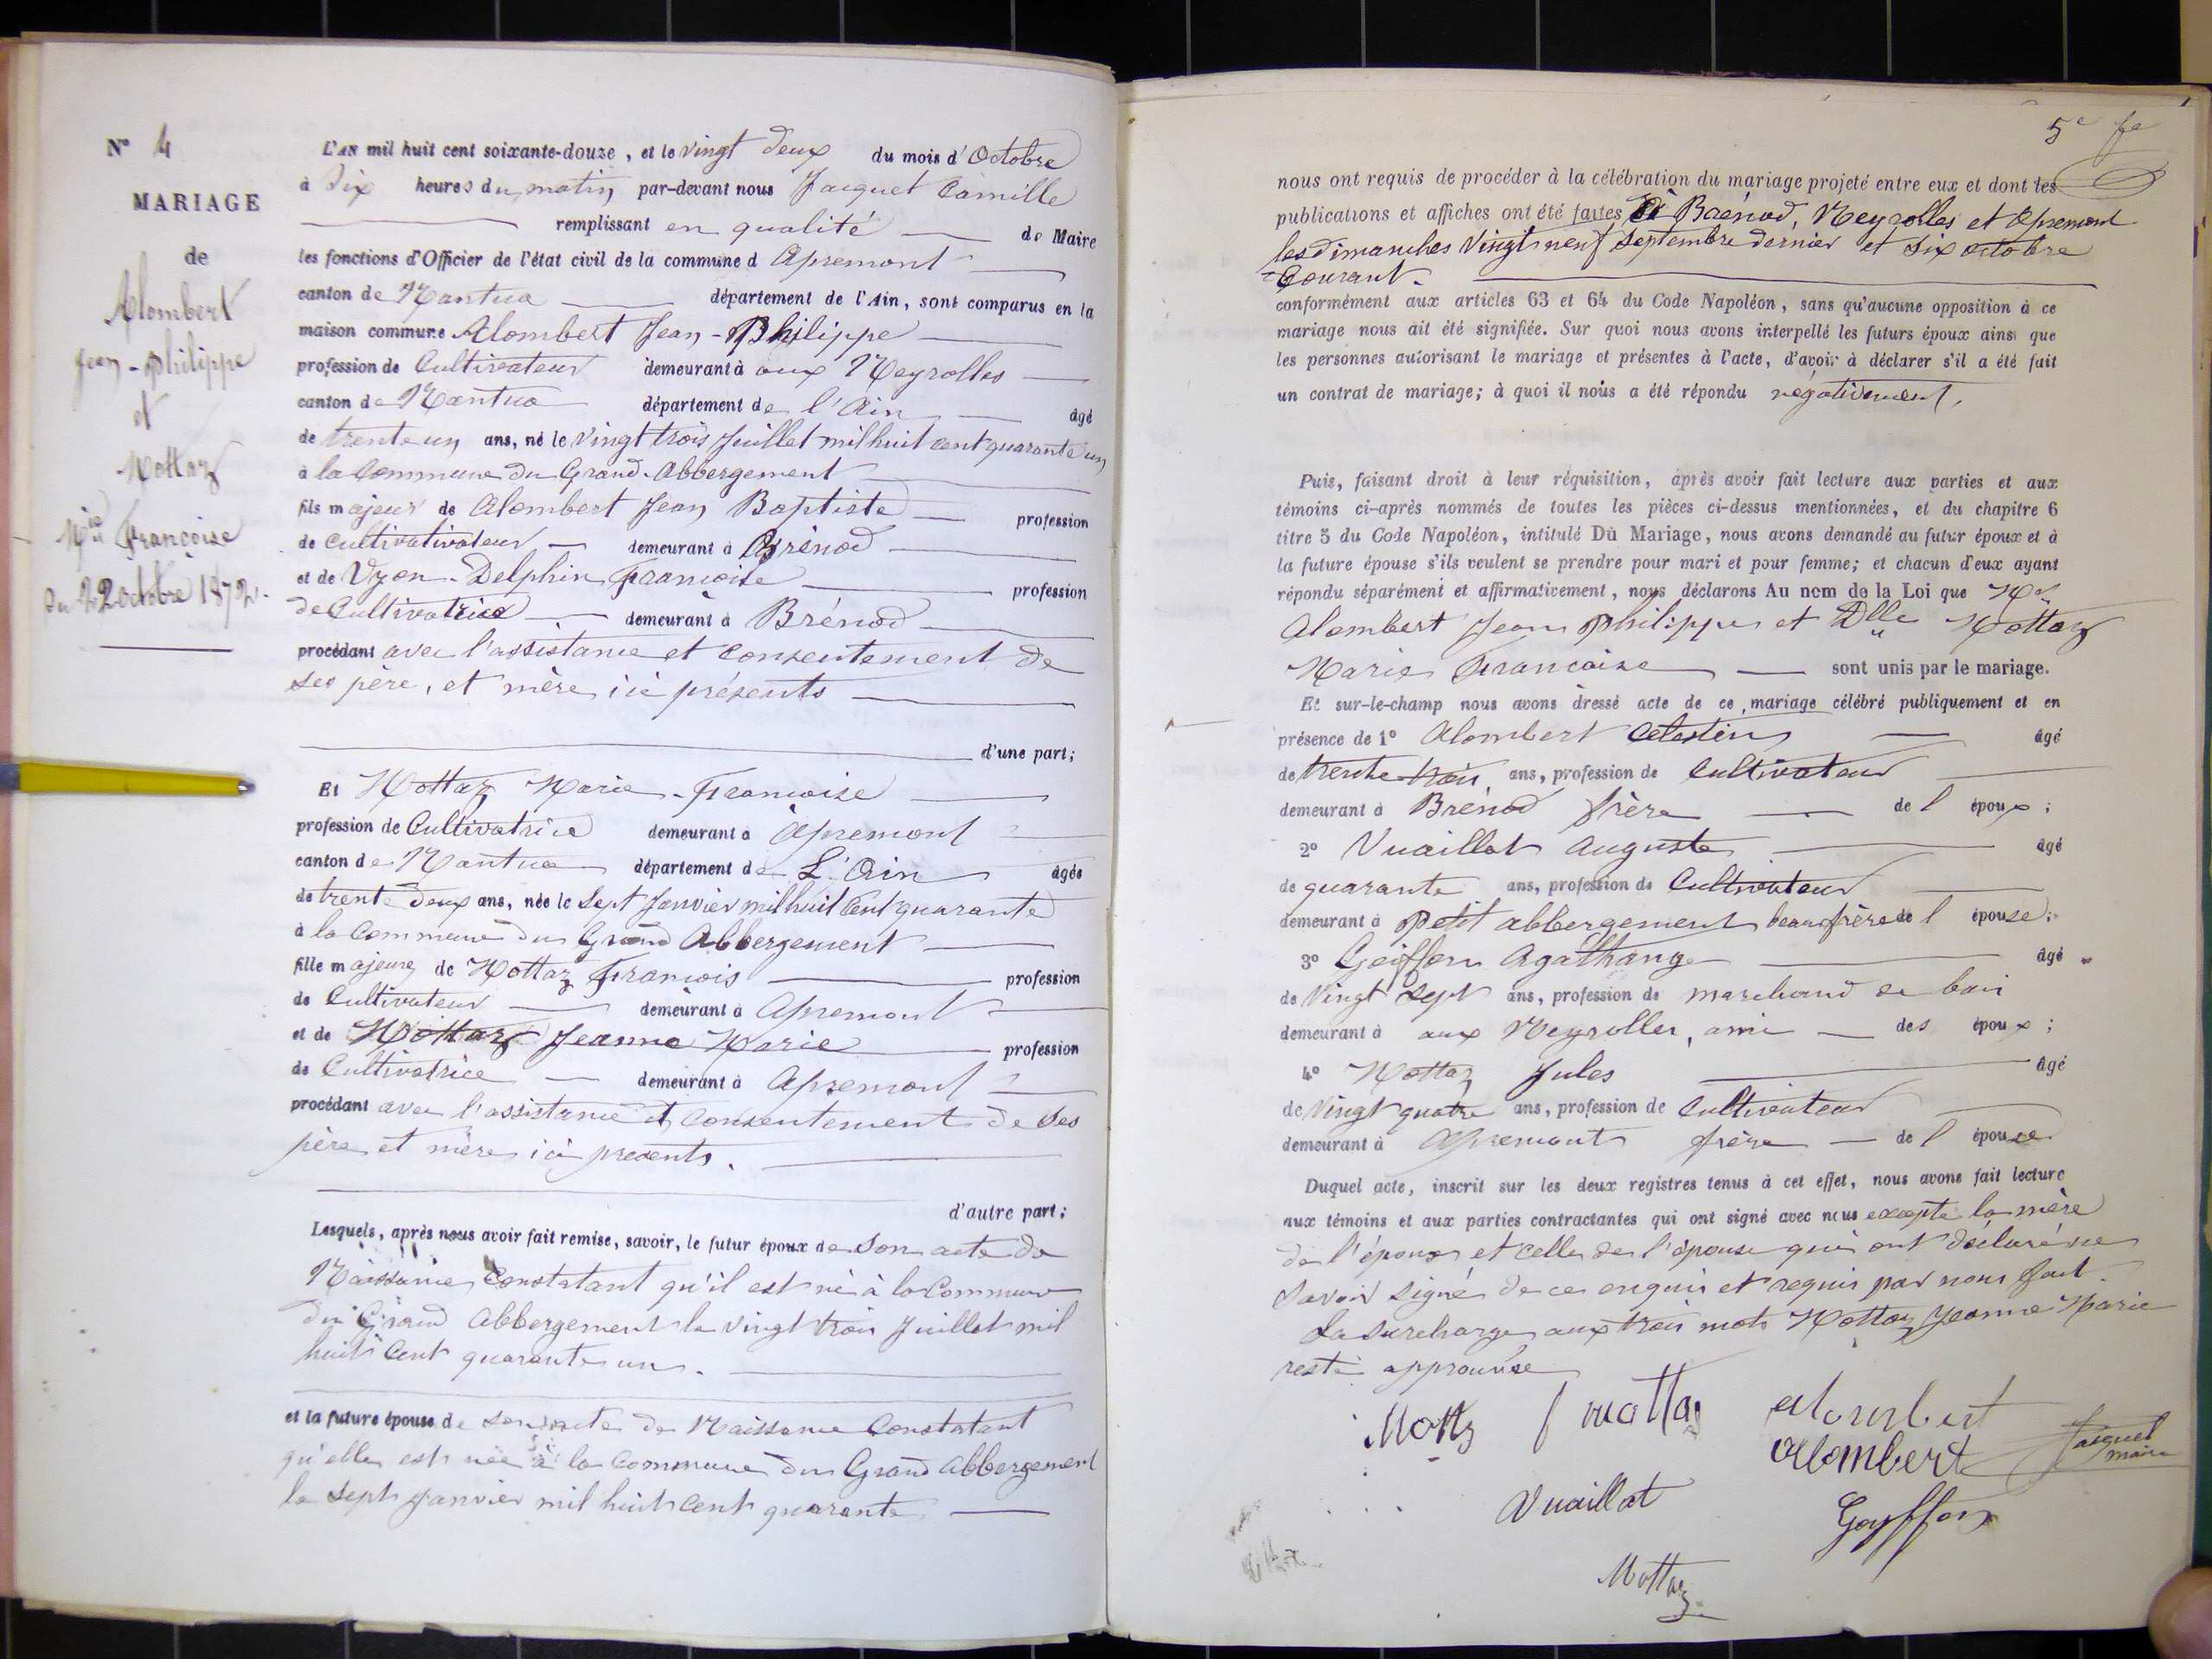 N° 4
MARIAGE
de
Alombert
Jean-Philippe
et
Mottaz
Mie Françoise
Du 22 octobre 1872.
L'AN mil huit cent soixante-douze, et le vingt deux du mois d'Octobre
à dix heures du matin par-devant nous Jacquet Camille
remplissant en qualité de Maire
les fonctions d'Officier de l'état civil de la commune d Apremont
canton de Nantua département de l'Ain, sont comparus en la
maison commune Alombert Jean-Philippe
profession de Cultivateur demeurant à aux Neyrolles
canton de Nantua département de l'Ain âgé
de trente un ans, né le vingt trois Juillet mil huit cent quarante un
à la Commune du Grand-Abbergement
fils majeur de Alombert Jean Baptiste profession
de cultivativateur demeurant à Brénod
et de Vyon-Delphin Françoise profession
de Cultivatrice demeurant à Brénod
procédant avec l'assistance et consentement de
ses père, et mère ici présents
d'une part;
Et Mottaz Marie-Françoise
profession de Cultivatrice demeurant à Apremont
canton de Nantua département de L'Ain âgée
de trente deux ans, née le sept Janvier mil huit Cent quarante
à la Commune du Grand Abbergement
fille majeure de Mottaz François profession
de Cultivateur demeurant à Apremont
et de Mottaz Jeanne Marie profession
de Cultivatrice demeurant à Apremont
procédant avec l'assistance et consentement de ses
père et mère ici présents.
d'autre part;
Lesquels, après nous avoir fait remise, savoir, le futur époux de son acte de
Naissance Constatant qu'il est né à la Commune
du Grand Abbergement le vingt trois Juillet mil
huit Cent quarante un.
et la future épouse de son acte de Naissance Constatant
qu'elle est née à la Commune du Grand Abbergement
le sept Janvier mil huit cent quarante
5e fe
nous ont requis de procéder à la célébration du mariage projeté entre eux et dont les
publications et affiches ont été faites à Brénod, Neyrolles et Apremont
les dimanches Vingt neuf Septembre dernier et six octobre
Courant.
conformément aux articles 63 et 64 du Code Napoléon, sans qu'aucune opposition à ce
mariage nous ait été signifiée. Sur quoi nous avons interpellé les futurs époux ainsi que
les personnes autorisant le mariage et présentes à l'acte, d'avoir à déclarer s'il a été fait
un contrat de mariage; à quoi il nous a été répondu négativement.
Puis, faisant droit à leur réquisition, après avoir fait lecture aux parties et aux
témoins ci-après nommés de toutes les pièces ci-dessus mentionnées, et du chapitre 6
titre 5 du Code Napoléon, intitulé Du Mariage, nous avons demandé au futur époux et à
la future épouse s'ils veulent se prendre pour mari et pour femme; et chacun d'eux ayant
répondu séparément et affirmativement, nous déclarons Au nom de la Loi que Mr
Alombert Jean Philippe et Dlle Mottaz
Marie Francaise sont unis par le mariage.
Et sur-le-champ nous avons dressé acte de ce mariage célébré publiquement et en
présence de 1° Alombert Celestin âgé
de trente-trois ans, profession de Cultivateur
demeurant à Brénod frère de l époux;
2° Vuaillat Auguste âgé
de quarante ans, profession de Cultivateur
demeurant à Petit abbergement beau frère de l épouse;
3° Goiffon Agathange âgé
de Vingt sept ans, profession de marchand de bois
demeurant à aux Neyrolles, ami des époux;
4° Mottaz Jules âgé
de Vingt quatre ans, profession de Cultivateur
demeurant à Apremont frère de l épouse
Duquel acte, inscrit sur les deux registres tenus à cet effet, nous avons fait lecture
aux témoins et aux parties contractantes qui ont signé avec nous excepté la mère
de l'époux et celle de l'épouse qui ont déclaré ne
savoir signé de ce enquis et requis par nous fait.
La surcharge aux trois mots Mottaz Jeanne Marie
reste approuvée
Mottz f mottaz alombert
Alombert Jacquet
maire
Vuaillat Goyffon
Mottaz